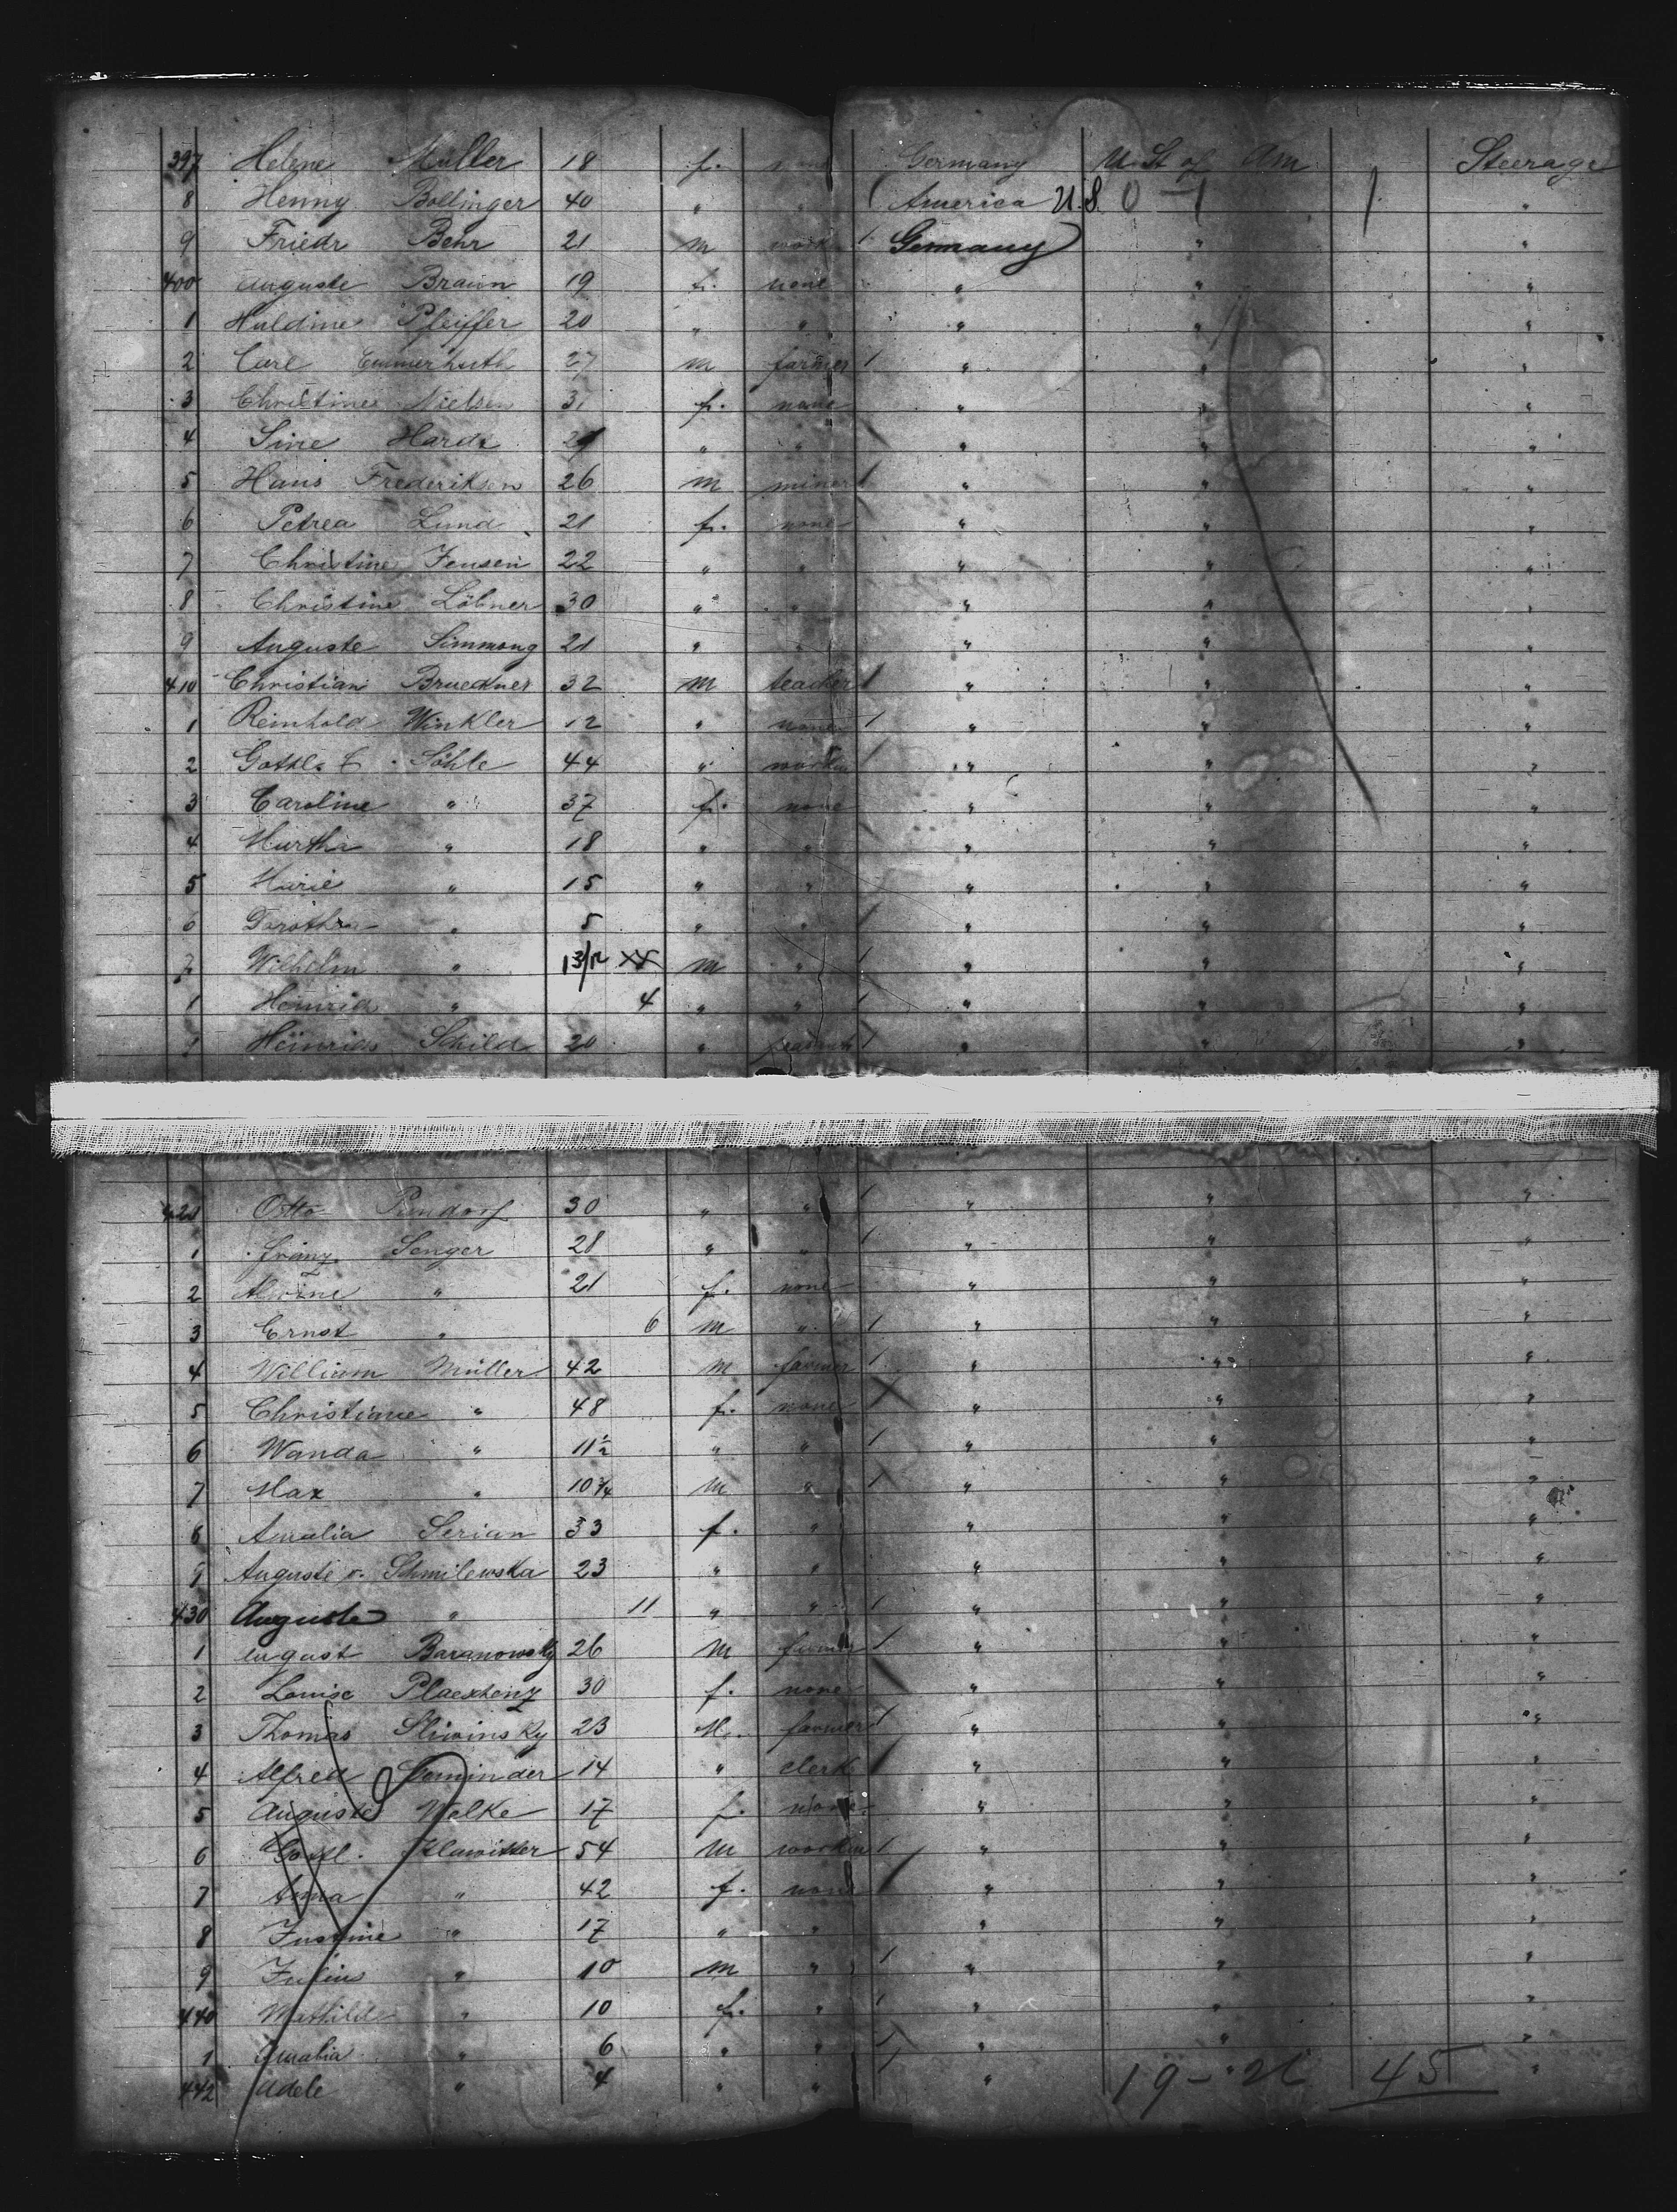 397 Helene Müller 18 f. none Germany U. St of Am Steerage
8 Henny Bollinger 40 " " America U.S. 0 - 1 / "
9 Friedr Behr 21 m 1 Germany " "
400 Auguste Braun 19 f. none " " "
1 Huldine Pfeiffer 20 " " " " "
2 Carl 27 m farmer 1 " " "
3 Christine Nielsen 31 f. none " " "
4 Sine " " " " "
5 Hans Frederiksen 26 m miner 1 " " "
6 Petrea Lund 21 f. none " " "
7 Christine Jensen 22 " " " " "
8 Christine Löbner 30 " " " " "
9 Auguste Simmong 21 " " " " "
410 Christian Brueckner 32 m teacher 1 " " "
1 Reinhold Winkler 12 " none 1 " " "
2 Söhle 44 " 1 " " "
3 Caroline " 37 f. none " " "
4 Martha " 18 " " " " "
5 Marie " 15 " " " " "
6 Dorothea " 5 " " 1 " " "
7 Wilhelm " 1 3/12 m " 1 " " "
1 Heinrich " 4 " " 1 " " "
9 Heinrich Schild 20 " 1 " " "
Otto 30 " " 1 " " "
1 Franz Senger 28 " " 1 " " "
2 Alwine " 21 f. none " " "
3 Ernst " 6 m " 1 " " "
4 William Müller 42 m farmer 1 " " "
5 Christiane " 48 f. none " " "
6 Wanda " 11½ " " 1 " " "
7 Max " 10¾ m " 1 " " "
8 Amalia Serian 33 f. " " " "
9 Auguste v. Schmilewska 23 " " " " "
430 Auguste " 11 " " 1 " " "
1 August Baranowsky 26 m farmer 1 " " "
2 Louise 30 f. none " " "
3 Thomas Sliwinsky 23 M. farmer 1 " " "
4 Alfred 14 " clerk 1 " " "
5 Auguste Welke 17 f. none " " "
6 Gottl. Klawitter 54 m 1 " " "
7 Anna " 42 f. none " " "
8 Justine " 17 " " " " "
9 Julius " 10 m " 1 " " "
440 Mathilde " 10 f. " 1 " " "
1 Amalia " 6 " " 1 " " "
442 Adele " 4 " " 1 " "
19 - 26 45